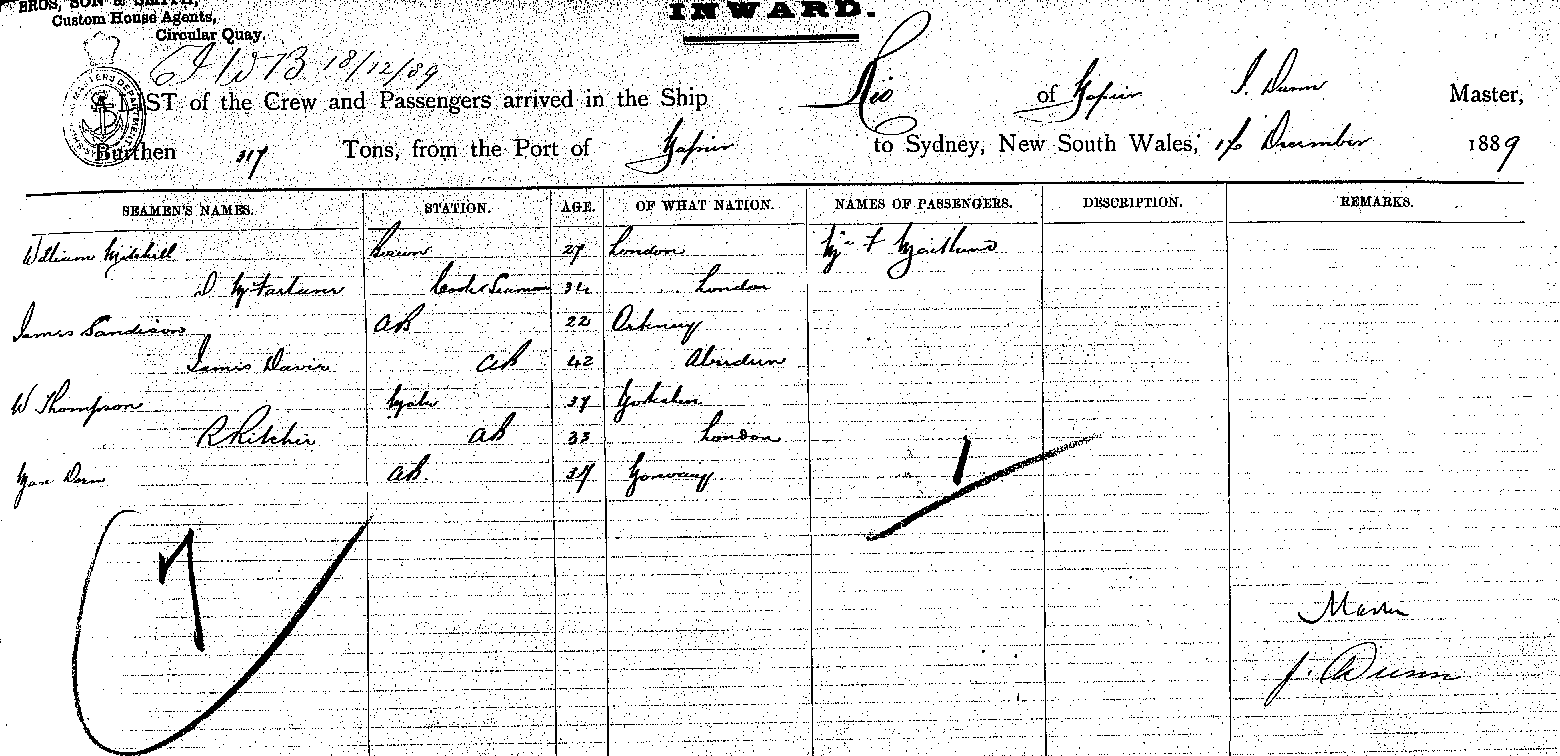 BROS, SON & SMITH,
Custom House Agents,
Circular Quay.
INWARD.
18/12/89
A LIST of the Crew and Passengers arrived in the Ship Rio of Napier J. Dunn Master,
Burthen 317 Tons, from the Port of Napier to Sydney, New South Wales, December 1889
SEAMEN'S NAMES. STATION. AGE. OF WHAT NATION. NAMES OF PASSENGERS. DESCRIPTION. REMARKS.
William Mitchell Bosun 27 London Mr F Maitland
D McFarlane Cook & Seaman London
James Sandison AB 22 Orkney
James Davis AB 42 Aberdeen
W Thompson Mate 37
R Ritchie AB 33 London
AB. 37 Norway
1
7
Master
J. Dunn